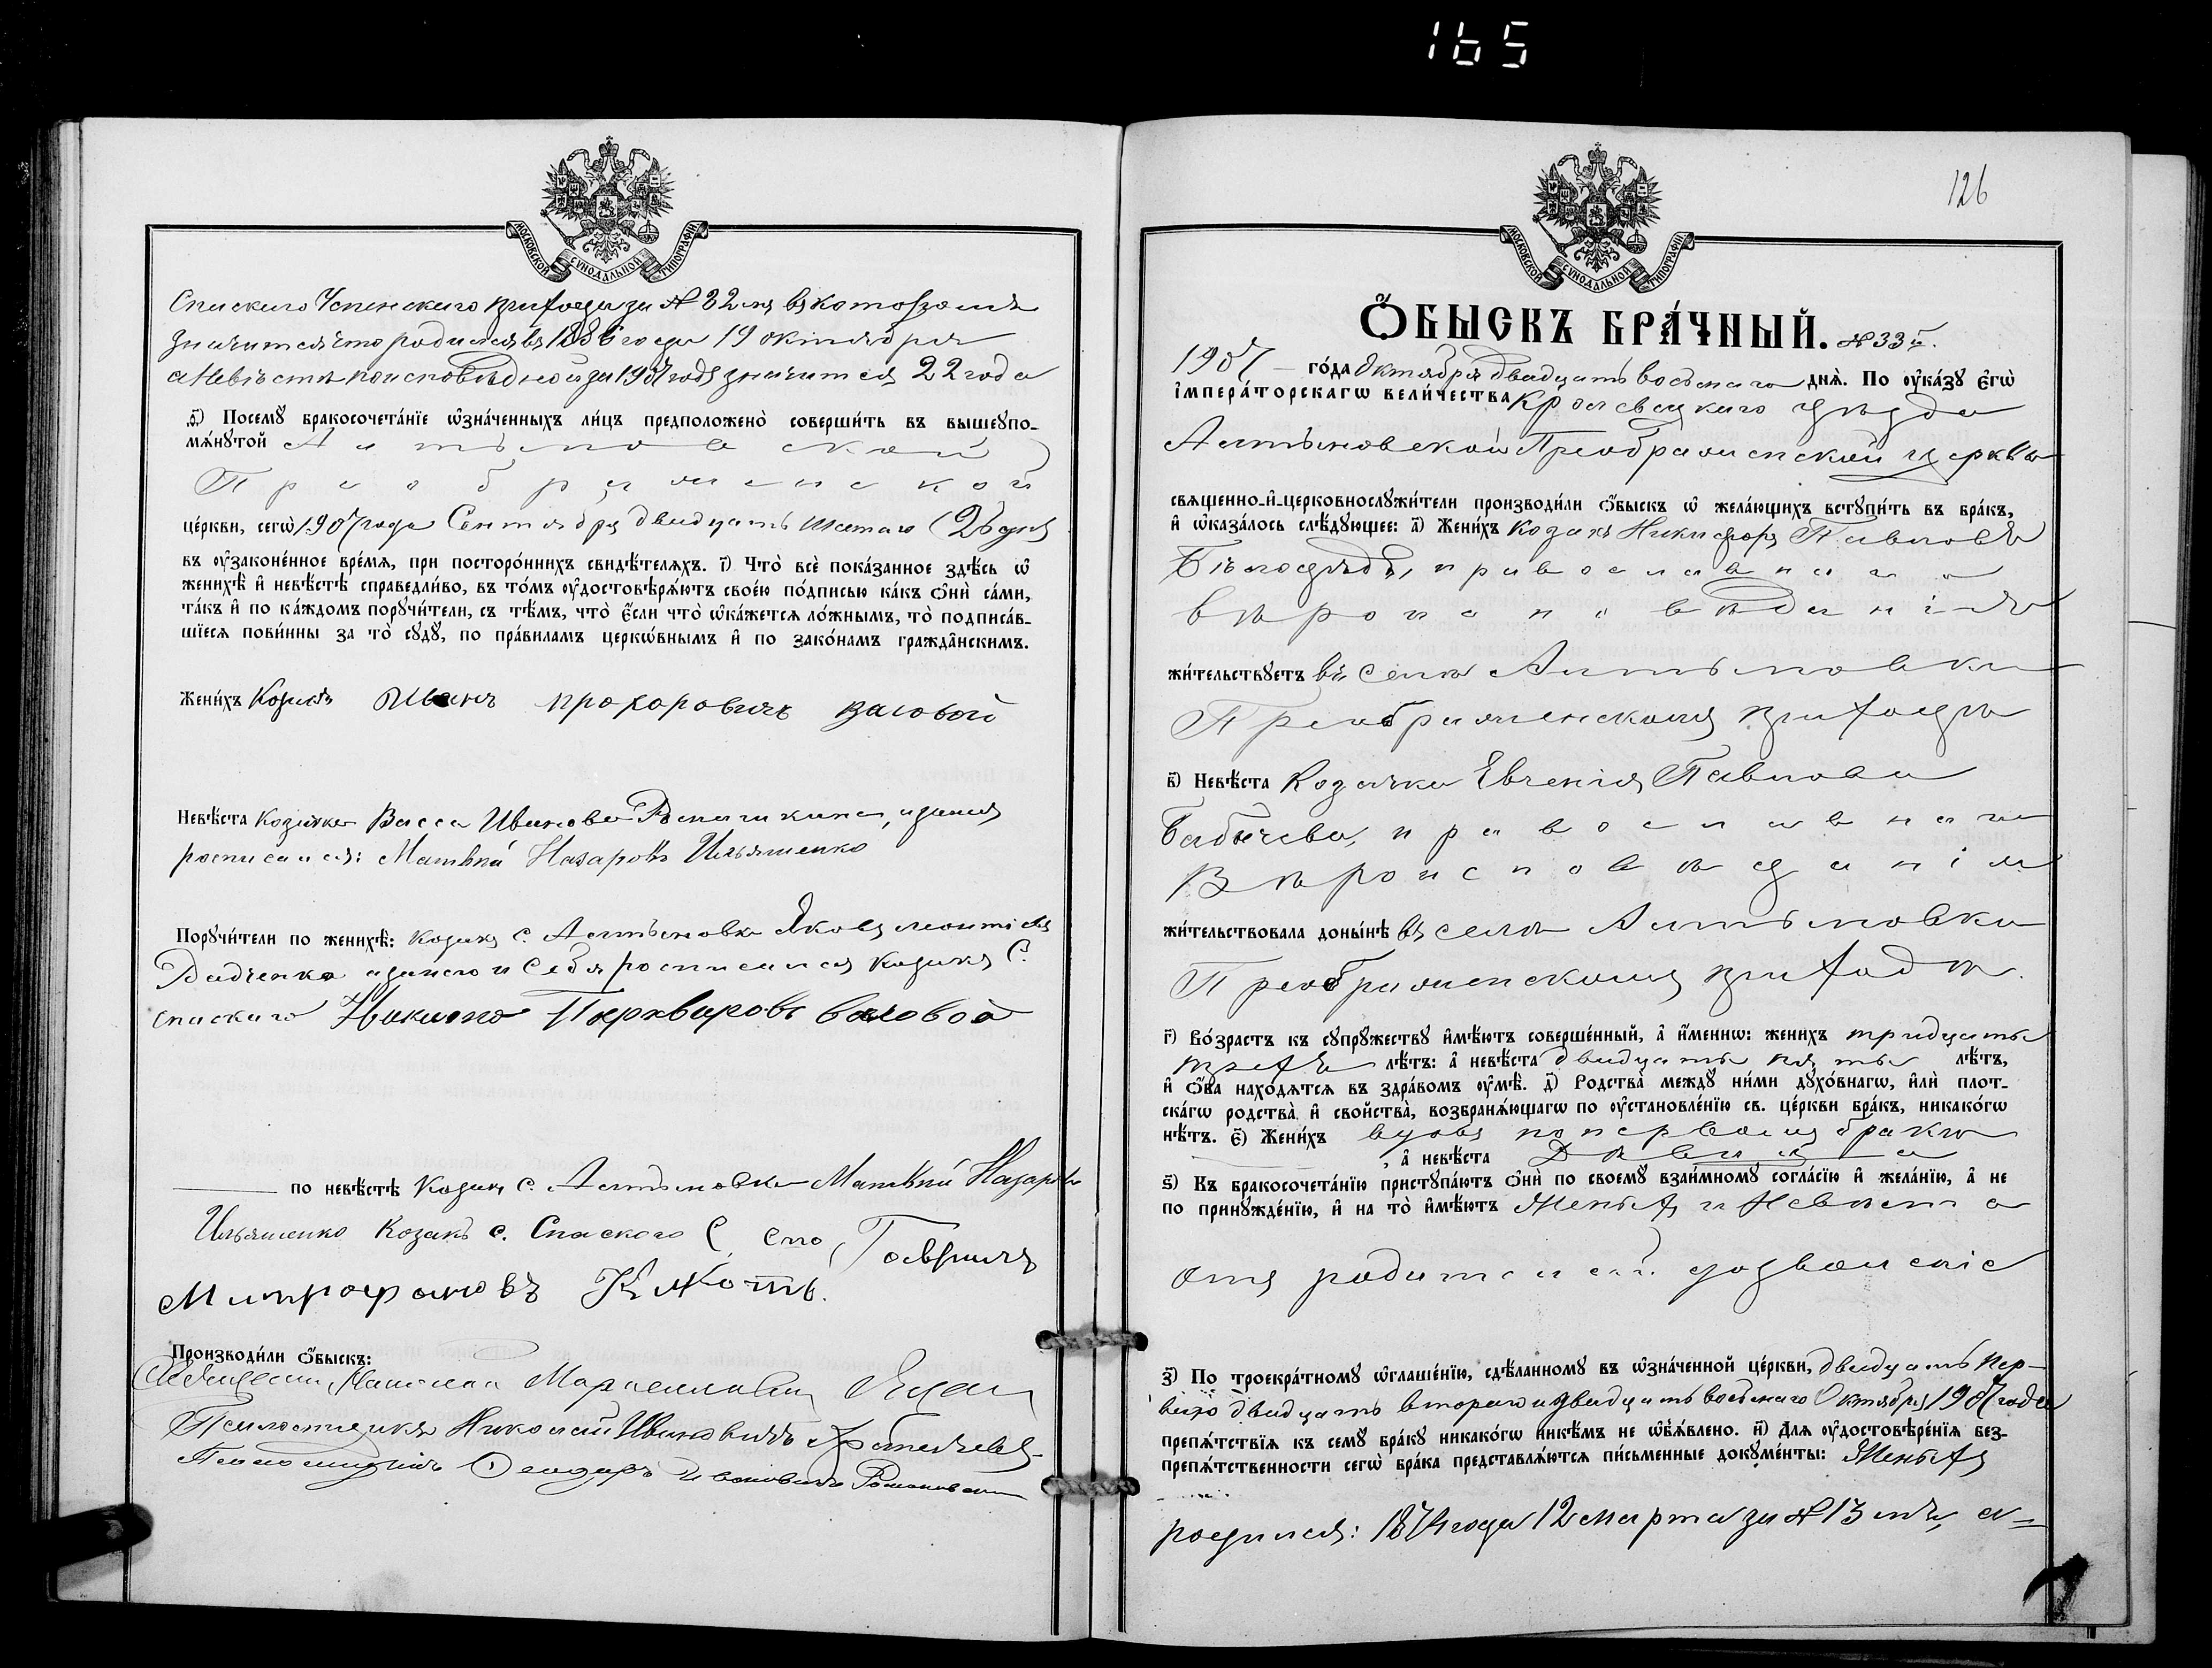 165
МОСКОВСКОЙ СУНОДАЛЬНОЙ ТИПОГРАФІИ
Спаского Успенского прихода за № 32мъ въ котовомъ
значится что родился въ 1886 года 19 октября
а Невѣста по исповѣдной за 1907 годъ значится 22 года
д҃) Посемꙋ бракосочета́нїе ѡ҆зна́ченныхъ ли́цъ предположено̀ соверши́ть въ вышеꙋпо-
мѧ́нꙋтой Алтыновской
Преображенской
це́ркви, сегѡ̀ 1907 года Сентября двадцать шестаго (26 дня
въ ᲂу҆законе́нное вре́мѧ, при посторо́ннихъ свидѣ́телѧхъ. г҃) Что̀ всѐ пока́занное здѣ́сь ѡ҆
женихѣ̀ и҆ невѣ́стѣ справедли́во, въ то́мъ ᲂу҆достовѣрѧ́ютъ свое́ю по́дписью ка́къ ѻ҆нѝ са́ми,
та́къ и҆ по ка́ждомъ порꙋчи́тели, съ тѣ́мъ, что̀ є҆́сли что̀ ѡ҆ка́жетсѧ ло́жнымъ, то̀ подписа́в-
шїесѧ пови́нны за то̀ сꙋдꙋ̀, по пра́виламъ церкѡ́внымъ и҆ по зако́намъ гражда̑нскимъ.
Жени́хъ Козакъ Иванъ прохоровичъ валовой
Невѣ́ста Козачка Васса Иванова, а за нея
росписался: Матвѣй Назаровъ Ильяшенко
Порꙋчи́тели по женихѣ̀: козакъ с. Алтыновки Яковъ леонтіевъ
Дадченко а за него и себя росписался козакъ с.
спаского валовой
по невѣ́стѣ Козакъ с. Алтыновки Матвѣй Назаровъ
Ильяшенко Козакъ с. Спаского Гавріилъ
Митрофановъ
Производи́ли ѻ҆́быскъ:
Священникъ
Псаломщикъ Николай Ивановичъ
Псаломщикъ Ѳеодоръ Ивановичъ Романовскій
126
МОСКОВСКОЙ СУНОДАЛЬНОЙ ТИПОГРАФІИ
Ѻ҆́БЫСКЪ БРА́ЧНЫЙ. № 33й.
1907 го́да Октября двадцать восьмаго днѧ̀. По ᲂу҆ка́зꙋ є҆гѡ̀
і҆мпера́торскагѡ вели́чества Кролевецкаго уѣзда
Алтыновской Преображенской церкви
свѧщенно-и҆-церковнослꙋжи́тели производи́ли ѻ҆́быскъ ѡ҆ жела́ющихъ встꙋпи́ть въ бра́къ,
и҆ ѡ҆каза́лось слѣ́дꙋющее: а҃) Жени́хъ козакъ Никифоръ Павловъ
православнаго
вѣроисповѣданія
жи́тельствꙋетъ въ селѣ Алтыновки
Преображенскомъ приходѣ
в҃) Невѣ́ста Козачка Евгенія Павлова
Бабичева, православнаго
Вѣроисповѣданія
жи́тельствовала доны́нѣ въ селѣ Алтыновки
Преображенскомъ приходѣ.
г҃) Во́зрастъ къ сꙋпрꙋ́жествꙋ и҆мѣ́ютъ соверше́нный, а҆ и҆́меннѡ: жени́хъ тридцать
трехъ лѣ́тъ: а҆ невѣ́ста двадцать пять лѣ́тъ,
и҆ ѻ҆́ба нахо́дѧтсѧ въ здра́вомъ ᲂу҆мѣ̀. д҃) Родства̀ междꙋ̀ ни́ми дꙋхо́внагѡ, и҆лѝ плот-
ска́гѡ родства̀ и҆ сво́йства, возбранѧ́ющагѡ по ᲂу҆становле́нїю св. це́ркви бра́къ, никако́гѡ
нѣ́тъ. є҃) Жени́хъ вдовъ по первомъ бракѣ
, а҆ невѣ́ста Дѣвица
ѕ҃) Къ бракосочета́нїю пристꙋпа́ютъ ѻ҆нѝ по своемꙋ̀ взаи́мномꙋ согла́сїю и҆ жела́нїю, а҆ не
по принꙋжде́нїю, и҆ на то̀ и҆мѣ́ютъ Женихъ и Невѣста
отъ родителей дозволеніе
з҃) По троекра́тномꙋ ѡ҆глаше́нїю, сдѣ́ланномꙋ въ ѡ҆зна́ченной це́ркви, двадцать пер-
ваго двадцать втораго и двадцать восьмаго Октября 1907 года
препѧ́тствїѧ къ семꙋ̀ бра́кꙋ никако́гѡ никѣ́мъ не ѡ҆б̾ѧ́влено. и҃) Длѧ ᲂу҆достовѣре́нїѧ без-
препѧ́тственности сегѡ̀ бра́ка представлѧ́ютсѧ пи́сьменные докꙋме́нты: Женихъ
родился: 1874 года 12 марта за № 13 мъ, а-